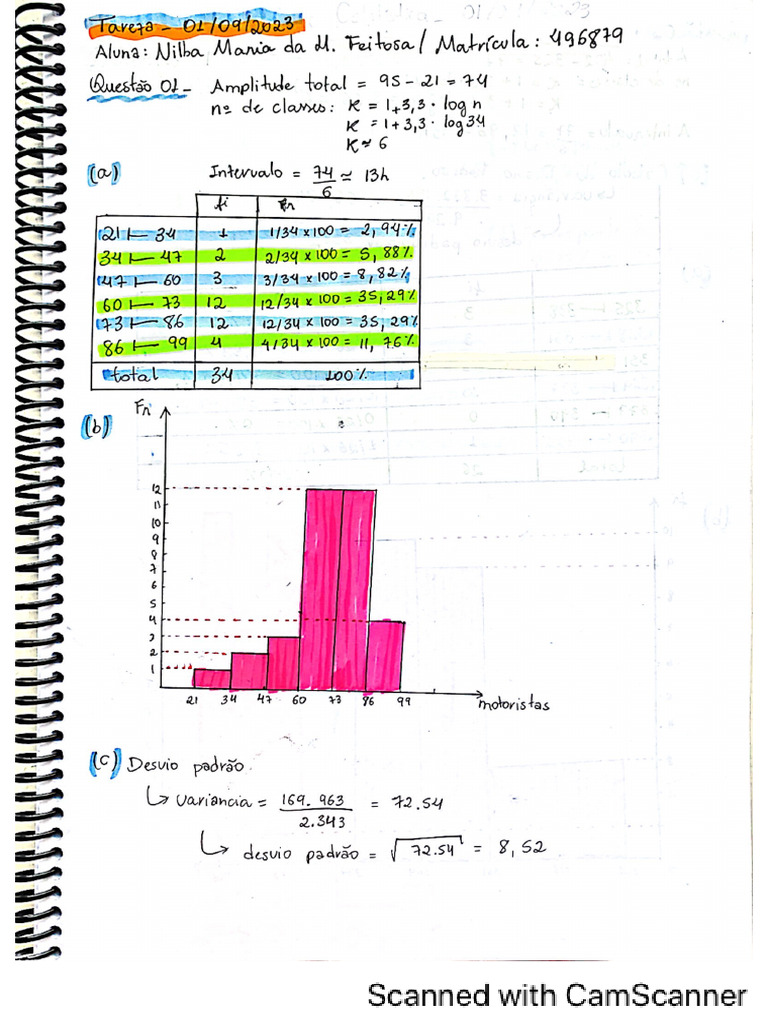 Tarefa - 01/09/2023
Aluna: Nilba Maria da M. Feitosa / Matrícula: 496879
Questão 01 - Amplitude total = 95 - 21 = 74
nº de classes: K = 1+3,3 · log n
K = 1+3,3 · log 34
K ≈ 6
(a) Intervalo = 74/6 ≃ 13h
fi Fr
21 ⊢ 34 1 1/34 x 100 = 2,94%
34 ⊢ 47 2 2/34 x 100 = 5,88%
47 ⊢ 60 3 3/34 x 100 = 8,82%
60 ⊢ 73 12 12/34 x 100 = 35,29%
73 ⊢ 86 12 12/34 x 100 = 35,29%
86 ⊢ 99 4 4/34 x 100 = 11,76%
total 34 100%
(b) Fr
12
11
10
9
8
7
6
5
4
3
2
1
21 34 47 60 73 86 99 motoristas
(c) Desvio padrão
↳ Variancia = 169.963/2.343 = 72.54
↳ desvio padrão = √72.54 = 8,52
Scanned with CamScanner